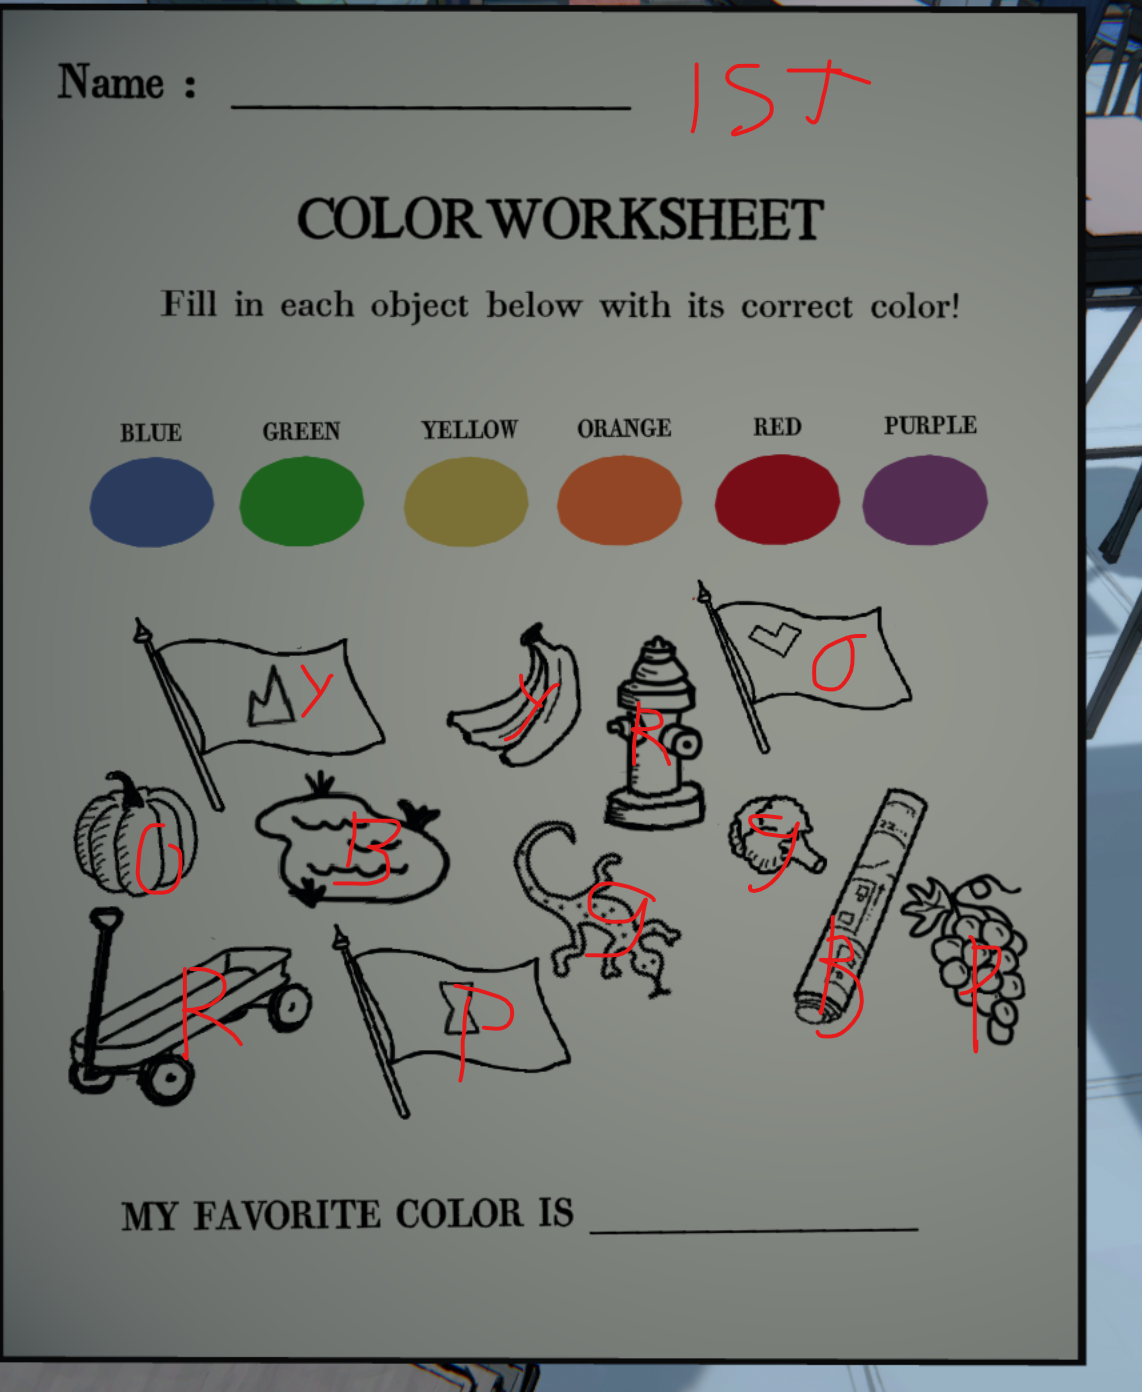 Name :
IST
COLOR WORKSHEET
Fill in each object below with its correct color!
BLUE GREEN YELLOW ORANGE RED PURPLE
Y Y R O
O B g g
R P B P
MY FAVORITE COLOR IS